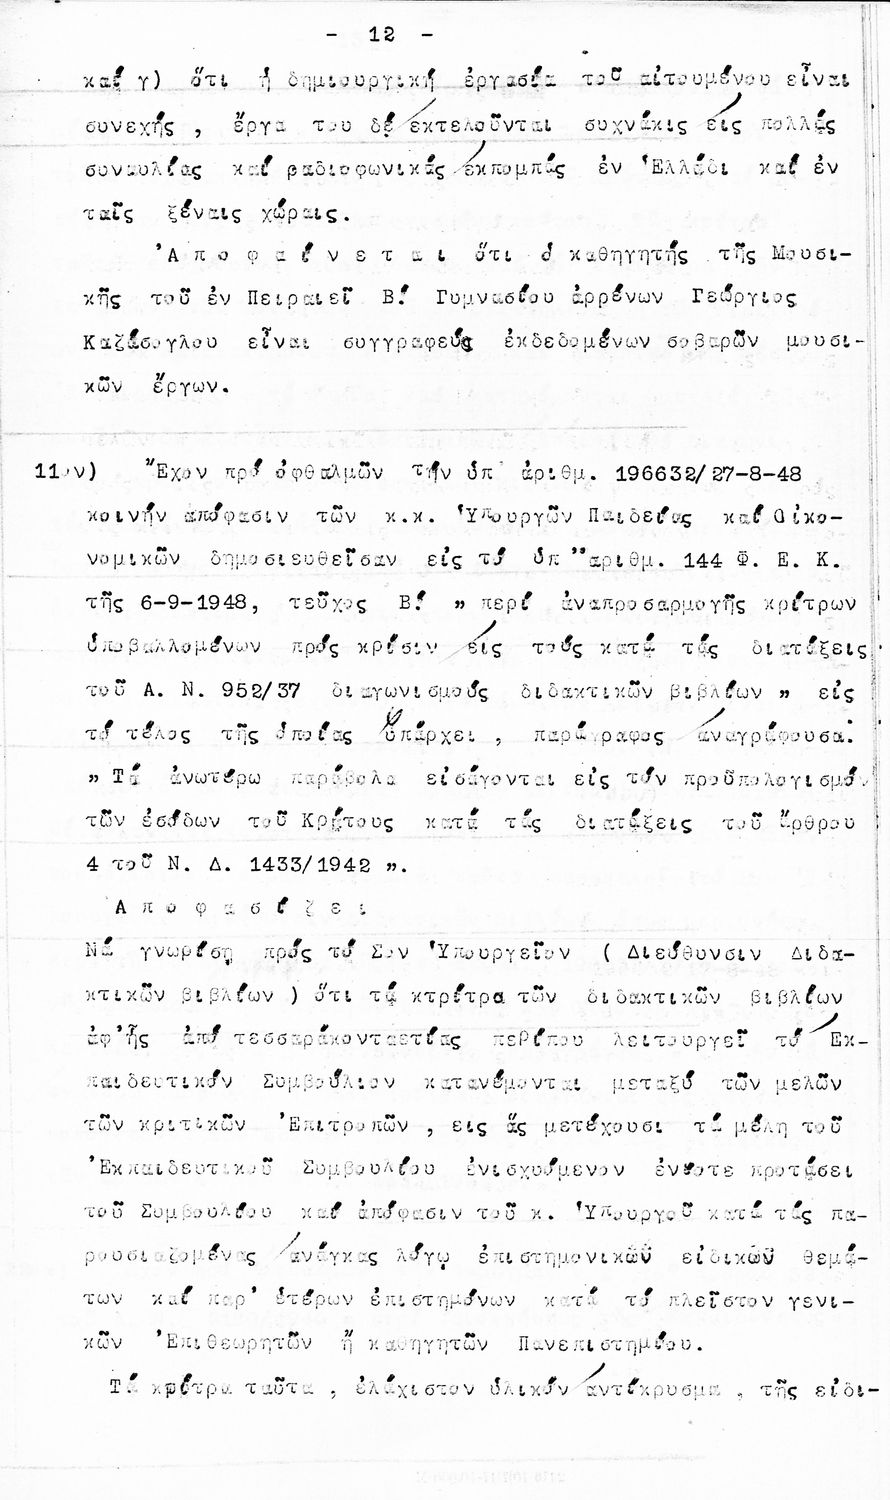 - 12 -
καί γ) ὅτι ἡ δημιουργική ἐργασία τοῦ αἰτουμένου εἶναι
συνεχής , ἔργα του δέ ἐκτελοῦνται συχνάκις εἰς πολλάς
συναυλίας καί ραδιοφωνικάς ἐκπομπάς ἐν Ἑλλάδι καί ἐν
ταῖς ξέναις χώραις.
Ἀ π ο φ α ί ν ε τ α ι ὅτι ὁ καθηγητής τῆς Μουσι-
κῆς τοῦ ἐν Πειραιεῖ Β΄ Γυμνασίου ἀρρένων Γεώργιος
Καζάσογλου εἶναι συγγραφεύς ἐκδεδομένων σοβαρῶν μουσι-
κῶν ἔργων.
11ον) Ἔχον πρό ὀφθαλμῶν τήν ὑπ' ἀριθμ. 196632/27-8-48
κοινήν ἀπόφασιν τῶν κ.κ. Ὑπουργῶν Παιδείας καί Οἰκο-
νομικῶν δημοσιευθεῖσαν εἰς τό ὑπ' ἀριθμ. 144 Φ. Ε. Κ.
τῆς 6-9-1948, τεῦχος Β΄ " περί ἀναπροσαρμογῆς κρίτρων
ὑποβαλλομένων πρός κρίσιν εἰς τούς κατά τάς διατάξεις
τοῦ Α. Ν. 952/37 διαγωνισμούς διδακτικῶν βιβλίων " εἰς
τό τέλος τῆς ὁποίας ὑπάρχει , παράγραφος ἀναγράφουσα:
" Τά ἀνωτέρω παράβολα εἰσάγονται εἰς τόν προϋπολογισμόν
τῶν ἐσόδων τοῦ Κράτους κατά τάς διατάξεις τοῦ ἄρθρου
4 τοῦ Ν. Δ. 1433/1942 ".
Α π ο φ α σ ί ζ ε ι
Νά γνωρίσῃ πρός τό Σον Ὑπουργεῖον ( Διεύθυνσιν Διδα-
κτικῶν βιβλίων ) ὅτι τά κτρίτρα τῶν διδακτικῶν βιβλίων
ἀφ'ἧς ἀπό τεσσαράκονταετίας περίπου λειτουργεῖ τό Ἐκ-
παιδευτικόν Συμβούλιον κατανέμονται μεταξύ τῶν μελῶν
τῶν κριτικῶν Ἐπιτροπῶν , εις ἅς μετέχουσι τά μέλη τοῦ
Ἐκπαιδευτικοῦ Συμβουλίου ἐνισχυόμενον ἐνίοτε προτάσει
τοῦ Συμβουλίου καί ἀπόφασιν τοῦ κ. Ὑπουργοῦ κατά τάς πα-
ρουσιαζομένας ἀνάγκας λόγῳ ἐπιστημονικῶν εἰδικῶν θεμά-
των καί παρ' ἑτέρων ἐπιστημόνων κατά τό πλεῖστον γενι-
κῶν Ἐπιθεωρητῶν ἤ καθηγητῶν Πανεπιστημίου.
Τά κρίτρα ταῦτα , ἐλάχιστον ὑλικόν ἀντίκρυσμα , τῆς εἰδι-